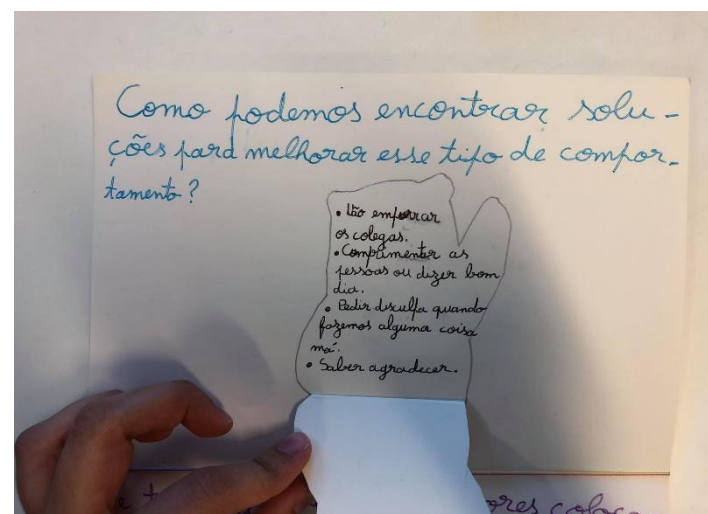 Como podemos encontrar solu-
ções para melhorar esse tipo de compor-
tamento?
• Não empurrar
os colegas.
• Complimentar as
pessoas ou dizer bom
dia.
• Pedir disculpa quando
fazemos alguma coisa
má.
• Saber agradecer.